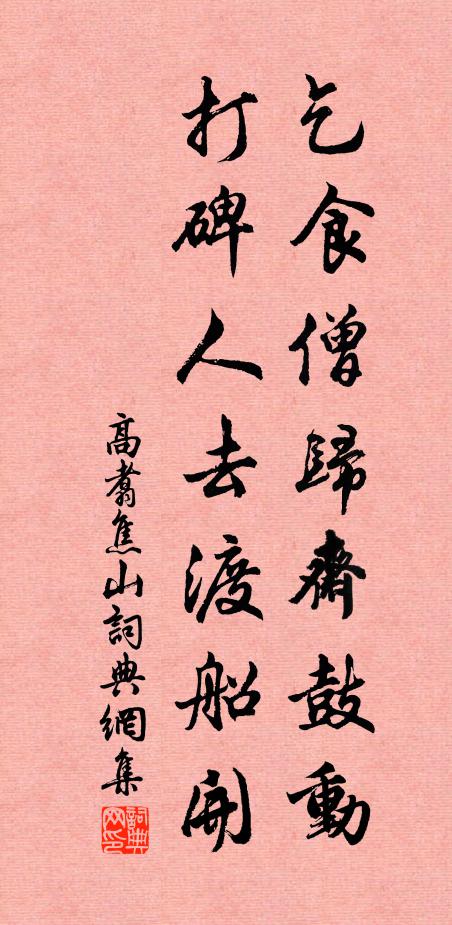 乞食僧歸齋鼓動
打碑人去渡船開
高翥焦山詞典網集
詞典网印